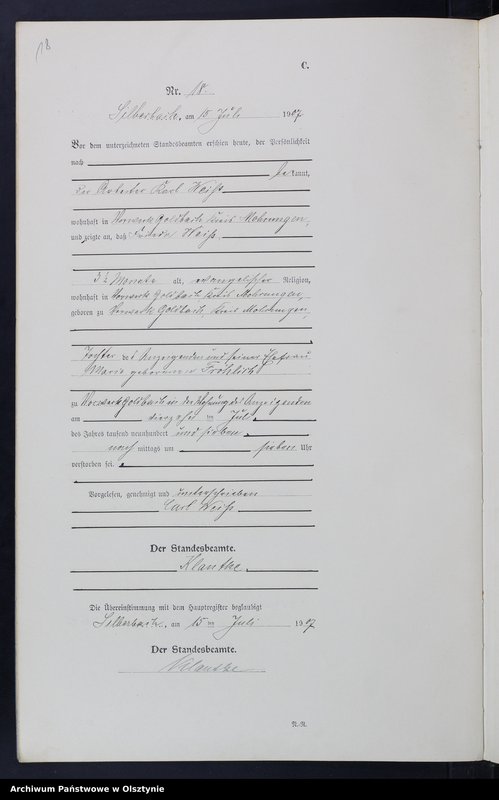 18
C.
Nr. 18
Silberbach, am 15 Juli 1907
Vor dem unterzeichneten Standesbeamten erschien heute, der Persönlichkeit
nach
bekannt,
der Arbeiter Karl Weiß
wohnhaft in Vorwerk Goldbach Kreis Mohrungen,
und zeigte an, daß Weiß
3 ½ Monate alt, evangelischer Religion,
wohnhaft in Vorwerk Goldbach Kreis Mohrungen,
geboren zu Vorwerk Goldbach, Kreis Mohrungen,
Tochter des Anzeigenden und seiner Ehefrau
Marie geborenen Fröhlich
zu Vorwerk Goldbach in der Wohnung des Anzeigenden
am vierzehn ten Juli
des Jahres tausend neunhundert und sieben
nach mittags um sieben Uhr
verstorben sei.
Vorgelesen, genehmigt und unterschrieben
Carl Weiß
Der Standesbeamte.
Klautke.
Die Übereinstimmung mit dem Hauptregister beglaubigt
Silberbach, am 15 ten Juli 1907
Der Standesbeamte.
Klautke
N.-R.
Archiwum Państwowe w Olsztynie